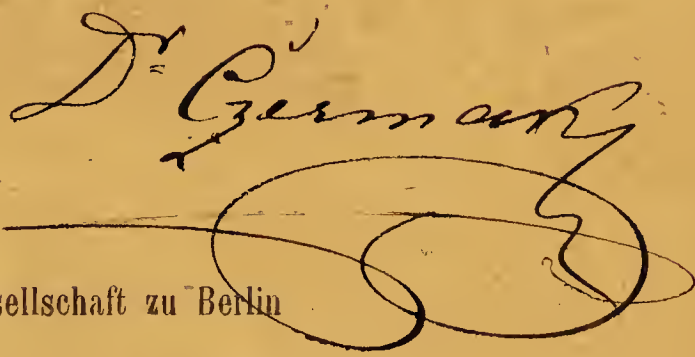 Dr Czermak
sellschaft zu Berlin